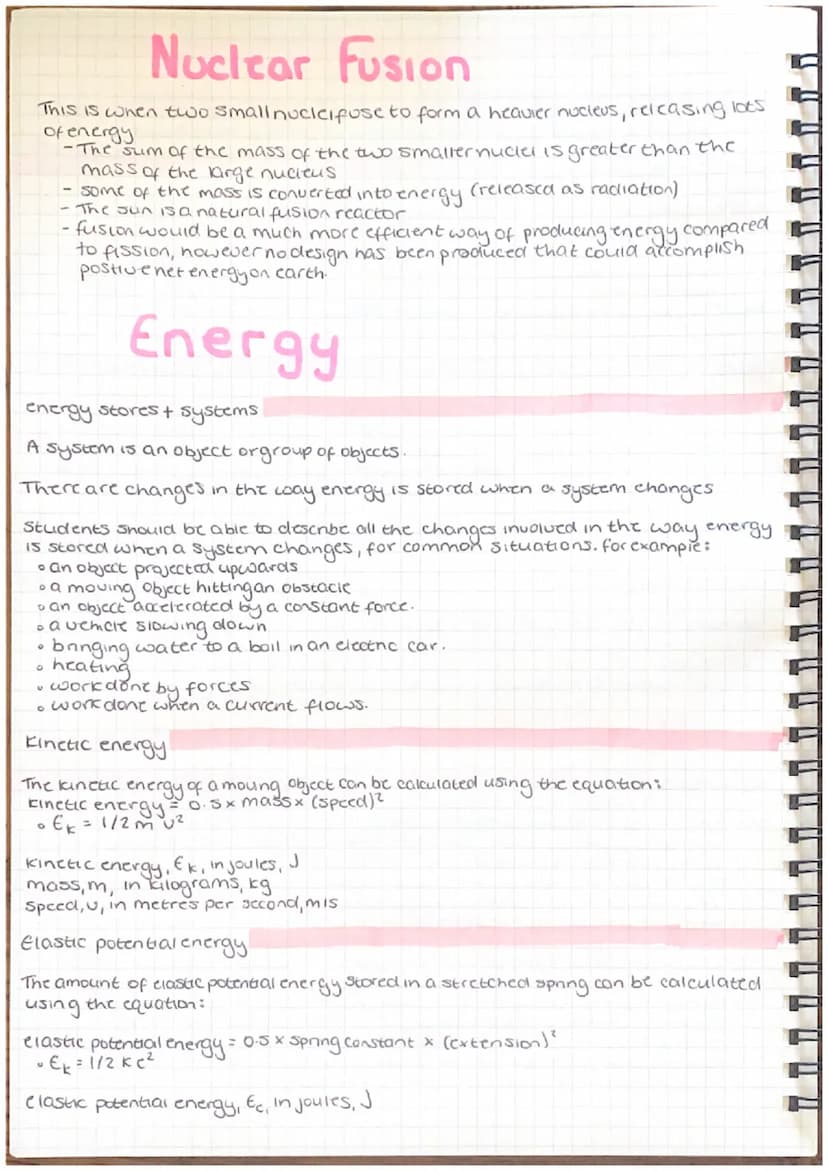 Nuclear Fusion
This is when two small nuclei fuse to form a heavier nucleus, releasing lots
of energy
- The sum of the mass of the two smaller nuclei is greater than the
mass of the large nucleus
- some of the mass is converted into energy (released as radiation)
- The sun is a natural fusion reactor
- fusion would be a much more efficient way of producing energy compared
to fission, however no design has been produced that could accomplish
postive net energy on earth.
Energy
energy stores + systems
A system is an object or group of objects.
There are changes in the way energy is stored when a system changes
Students should be able to describe all the changes involved in the way energy
is stored when a system changes, for common situations. for example:
• an object projected upwards
• a moving object hitting an obstacle
• an object accelerated by a constant force.
• a vehicle slowing down
• bringing water to a boil in an electric car.
• heating
• work done by forces
• work done when a current flows.
Kinetic energy
The kinetic energy of a moving object can be calculated using the equation:
kinetic energy = 0.5 x mass x (speed)²
• Ek = 1/2 m v²
kinetic energy, Ek, in joules, J
mass, m, in kilograms, kg
speed, v, in metres per second, m/s
Elastic potential energy
The amount of elastic potential energy stored in a stretched spring can be calculated
using the equation:
elastic potential energy = 0.5 x spring constant x (extension)²
• Ek = 1/2 k e²
elastic potential energy, Ee, in joules, J